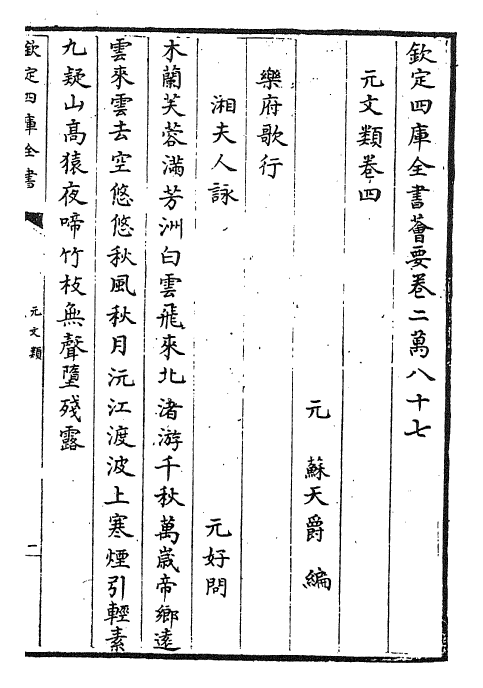 欽定四庫全書薈要卷二萬八十七
元文類卷四
元　蘇天爵　編
樂府歌行
湘夫人詠　元好問
木蘭芙蓉滿芳洲白雲飛來北渚游千秋萬歲帝鄉遠
雲來雲去空悠悠秋風秋月沅江渡波上寒煙引輕素
九疑山高猿夜啼竹枝無聲墮殘露
欽定四庫全書
元文類
二